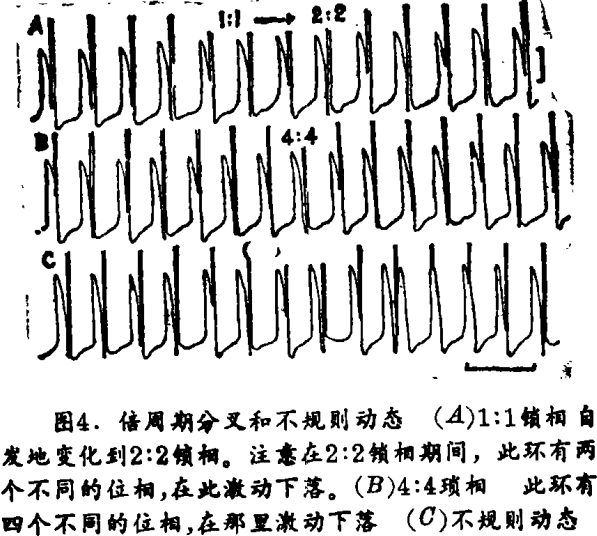 A 1:1 → 2:2
B 4:4
C
图4. 倍周期分叉和不规则动态 (A)1:1锁相自
发地变化到2:2锁相。注意在2:2锁相期间，此环有两
个不同的位相,在此激动下落。(B)4:4琐相 此环有
四个不同的位相,在那里激动下落 (C)不规则动态